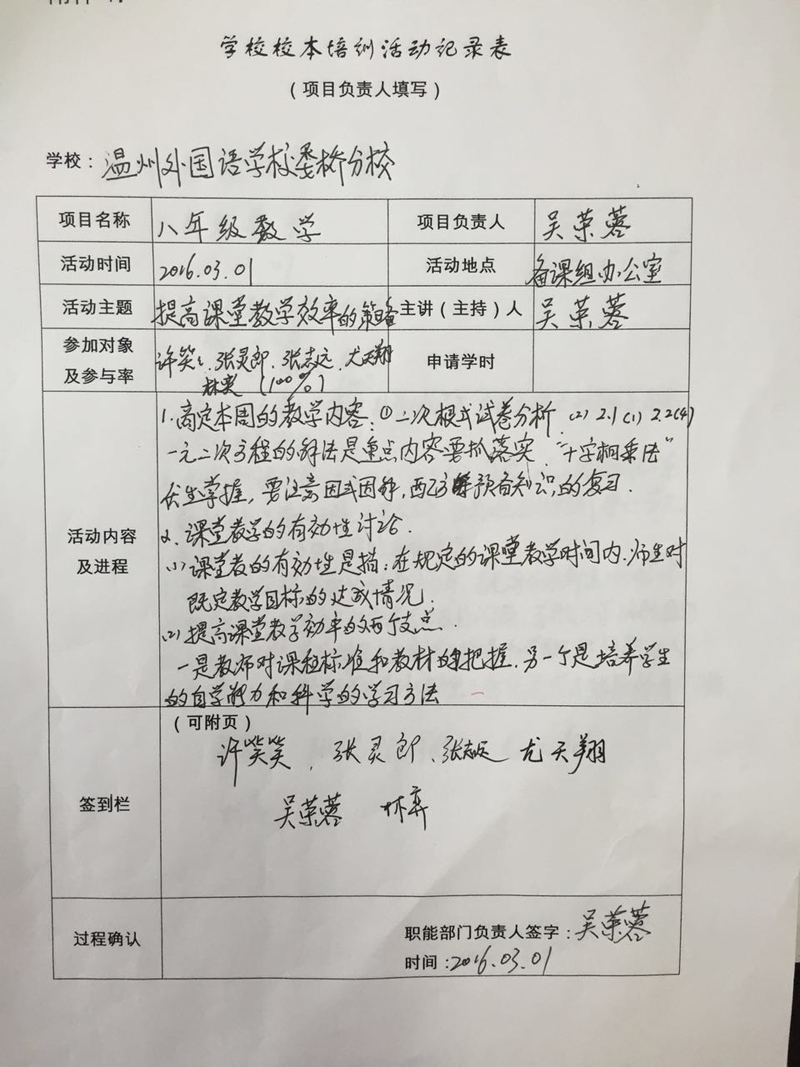 学校校本培训活动记录表
(项目负责人填写)
学校：温州外国语学校娄桥分校
项目名称 八年级数学 项目负责人 吴荣蓉
活动时间 2016.03.01 活动地点 备课组办公室
活动主题 提高课堂教学效率的策略 主讲(主持)人 吴荣蓉
参加对象及参与率 许笑笑、张灵郎、张志远、尤天翔 (100%) 申请学时
活动内容及进程
1. 商定本周的教学内容：①二次根式试卷分析 (2) 2.1(1) 2.2(4)
一元二次方程的解法是重点内容要抓落实．"十字相乘法"
学掌握，要注意因式因解，预备知识的复习．
2、课堂教学的有效性讨论．
(1) 课堂教的有效性是指：在规定的课堂教学时间内．师生对
既定教学目标的达成情况．
(2) 提高课堂教学效率的两个支点．
一是教师对课程标准和教材的把握．另一个是培养学生
的自学能力和科学的学习方法
签到栏
(可附页)
许笑笑、张灵郎、张志远 尤天翔
吴荣蓉
过程确认
职能部门负责人签字：吴荣蓉
时间：2016.03.01